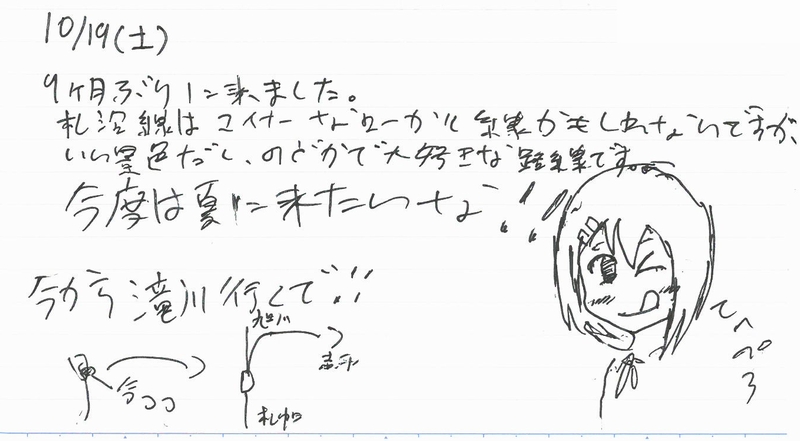 10/19(土)
9ヶ月ぶりに来ました。
札沼線はマイナーなローカル線かもしれないですが、
いい景色だし、のどかで大好きな路線です。
今度は夏に来たいな!!
今から滝川行くで!!
旭川
今ココ
札幌
てへぺろ